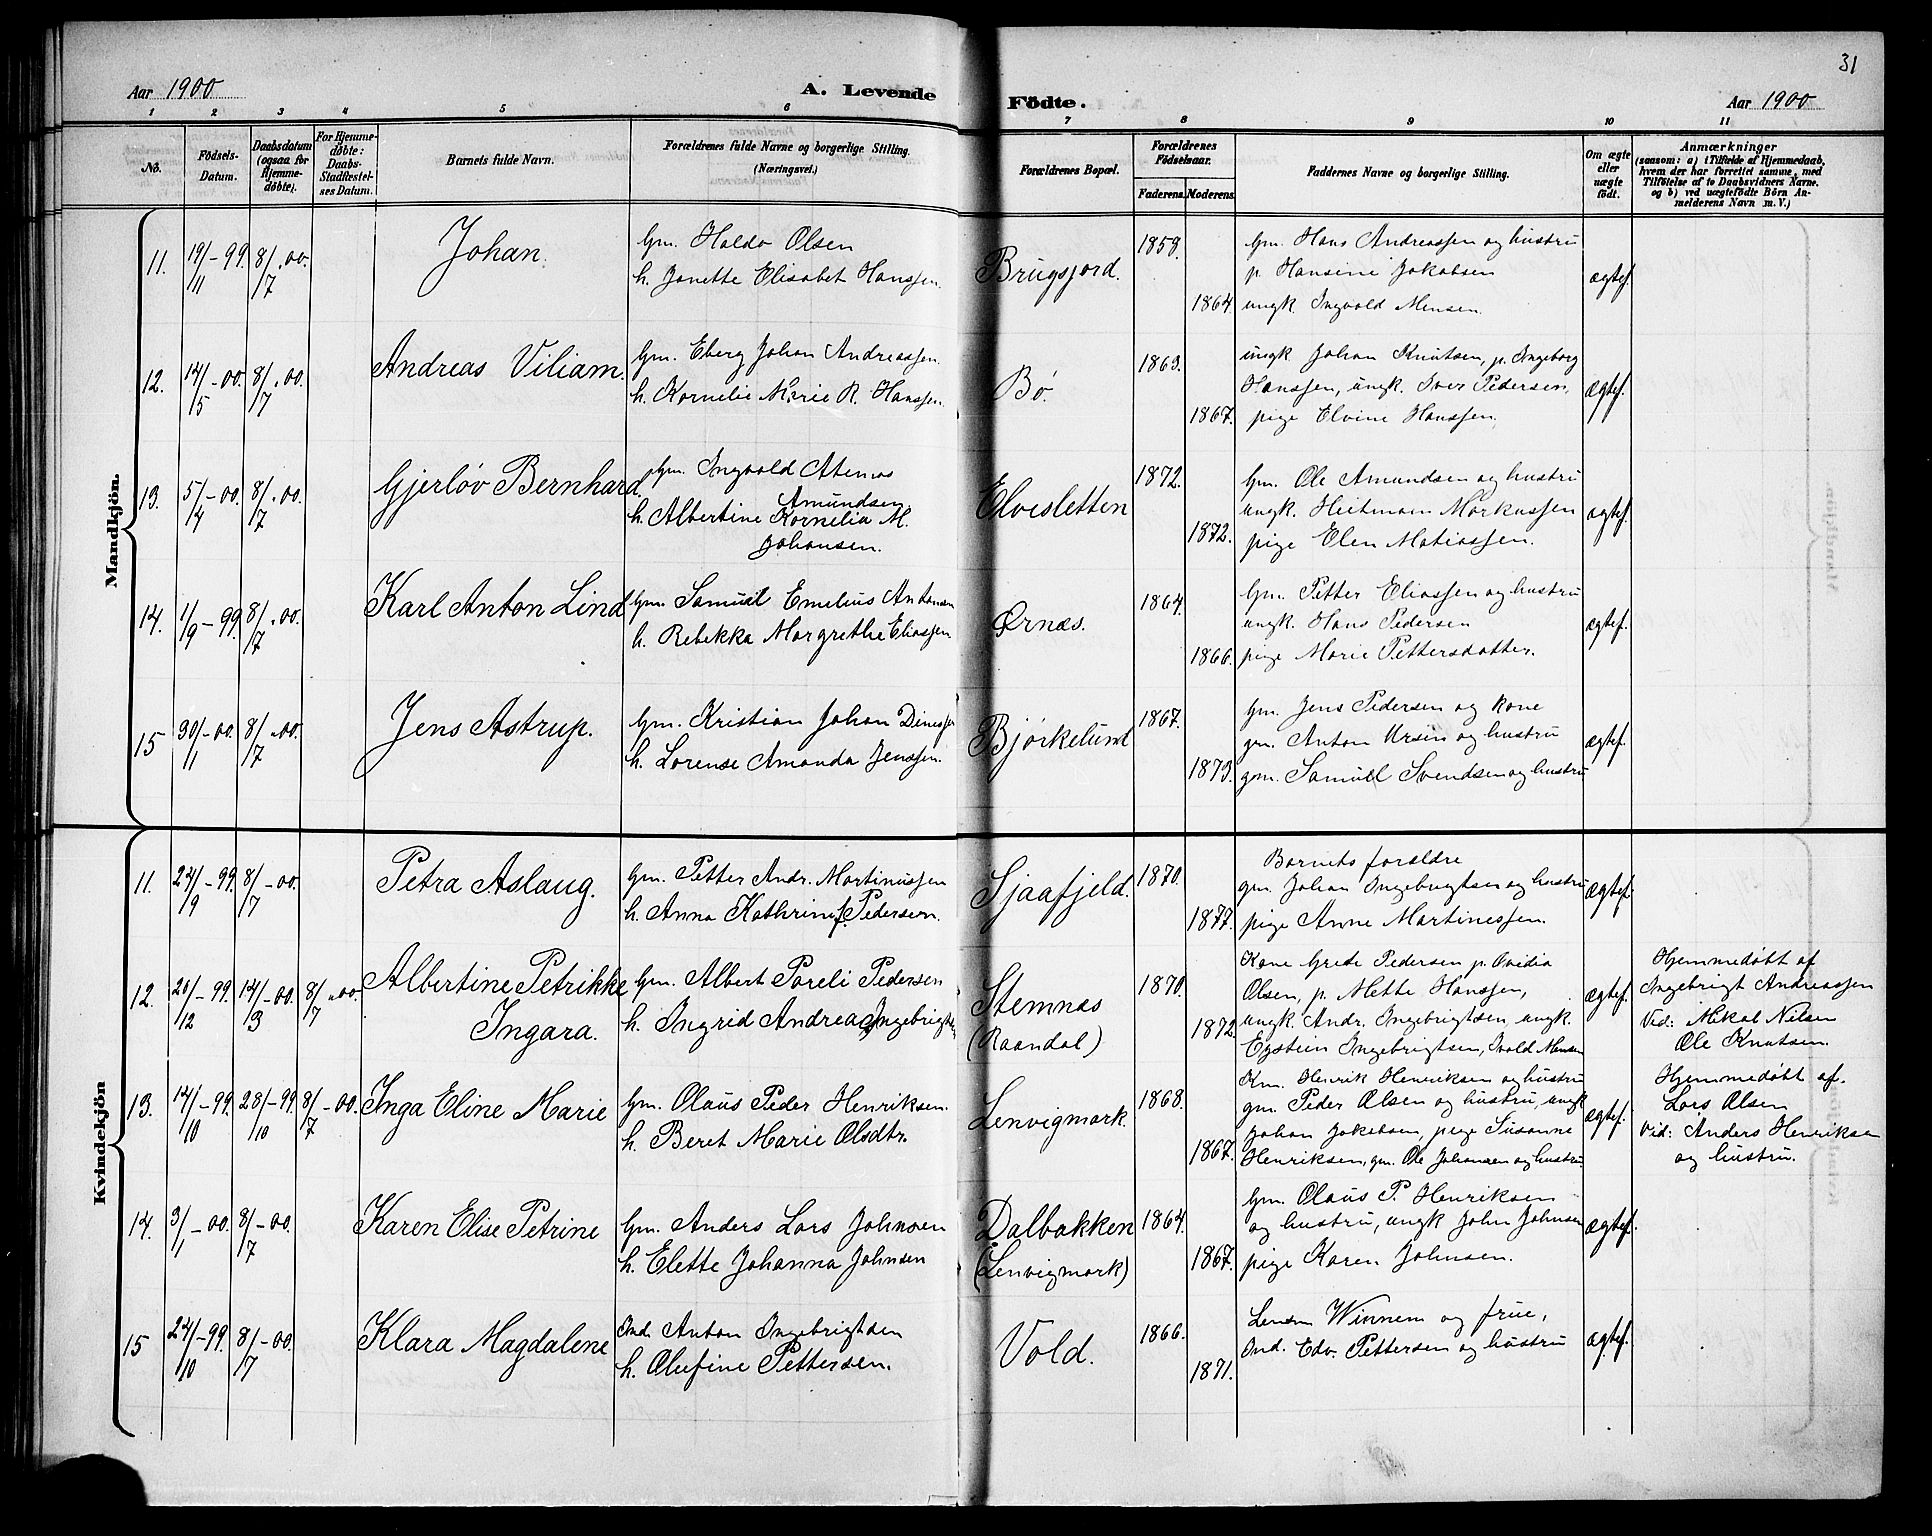 31
Aar 1900
A. Levende
Födte.
Aar 1900
1 2 3 4 5 6 7 8 9 10 11
No.
Födsels-
Datum.
Daabsdatum
(ogsaa for
Hjemme-
døbte).
For Hjemme-
døbte:
Daabs-
Stadfestel-
ses Datum.
Barnets fulde Navn.
Forældrenes fulde Navne og borgerlige Stilling.
(Næringsvei.)
Forældrenes Bopæl.
Forældrenes
Födselsaar.
Faderens.
Moderens.
Faddernes Navne og borgerlige Stilling.
Om ægte
eller
uægte
födt.
Anmærkninger
(saasom: a) i Tilfælde af Hjemmedaab,
hvem der har forrettet samme, med
Tilföielse af to Daabsvidners Navne.
og b) ved uægtefödte Börn An-
melderens Navn m. V.)
Mandkjön.
11. 19/11 - 99. 8/7 . 00.
Johan.
Gm. Haldo Olsen
h. Janette Elisabet Hanssen.
Brugsjord.
1858.
1864.
Gm. Hans Andreassen og hustru
p. Hansine Jakobsen
ungk. Ingvald Monsen.
ægtef.
12. 14/5 - 00. 8/7 . 00.
Andreas Viliam.
Gm. Eberg Johan Andreassen.
h. Kornelie Marie R. Hanssen.
Bø.
1863.
1867.
ungk Johan Knutsen, p. Ingeborg
Hanssen, ungk. Iver Pedersen,
pige Elvine Hanssen.
ægtef.
13. 5/4 - 00. 8/7 . 00.
Gjerløv Bernhard.
Gm. Ingvald Atenas
Amundsen
h. Albertine Kornelia M.
Johansen.
Elvesletten
1872.
1872.
Gm. Ole Amundsen og hustru
ungk. Heitmann Markussen
pige Elen Matiassen.
ægtef.
14. 1/9 - 99. 8/7 . 00.
Karl Anton Lind
Gm. Samuel Emelius Antonsen
h. Rebekka Margrethe Eliassen
Ørnæs.
1864.
1866.
Gm. Petter Eliassen og hustru
ungk. Hans Pedersen
pige Marie Pettersdatter.
ægtef.
15 30/11 - 00. 8/7 . 00.
Jens Astrup.
Gm. Kristian Johan Dinessen
h. Lorense Amanda Jenssen.
Bjørkelund
1867.
1873.
Gm. Jens Pedersen og kone
gm. Anton Ursin og hustru
gm. Samuel Svendsen og hustru
ægtef.
Kvindekjön
11. 24/9 - 99. 8/7 - 00.
Petra Aslaug.
Gm. Petter Andr. Martinussen
h. Anna Kathrine F. Pedersen.
Sjaafjeld.
1870.
1877.
Barnets forældre
gm. Johan Ingebrigtsen og hustru
pige Anne Martinessen.
ægtef.
12. 20/12 - 99. 14/3 - 00. 8/7 . 00.
Albertine Petrikke
Ingara.
Gm. Albert Pareli Pedersen
h. Ingrid Andrea Ingebrigts
Stemnæs
(Raandal)
1870.
1872.
Kone Grete Pedersen p. Ovidia
Olsen, p. Mette Hanssen,
ungk. Andr. Ingebrigtsen, ungk.
Eystein Ingebrigtsen, Ivald Monsen
ægtef.
Hjemmedøbt af
Ingebrigt Andreassen
Vid: Mikal Nilsen
Ole Knutsen.
13. 14/10 - 99. 28/10 - 99. 8/7 - 00.
Inga Eline Marie
Gm. Olaus Peder Henriksen.
h. Beret Marie Olsdtr.
Lenvigmark.
1868.
1867.
Km. Henrik Henriksen og hustru
gm. Peder Olsen og hustru, ungk
Johan Jakobsen, pige Susanne
Henriksen, gm. Ole Johansen og hustru
ægtef.
Hjemmedøbt af.
Lars Olsen
Vid: Anders Henriksen
og hustru.
14. 3/1 - 00. 8/7 - 00.
Karen Elise Petrine
Gm. Anders Lars Johnsen
h. Elette Johanna Johnsen
Dalbakken
(Lenvigmark)
1864.
1867.
Gm. Olaus P. Henriksen
og hustru, ungk John Johnsen
pige Karen Johnsen.
ægtef.
15 24/10 - 99. 8/7 - 00.
Klara Magdalene
Ind. Anton Ingebrigtsen
h. Olufine Pettersen.
Vold.
1866.
1871.
Winnem og frue,
Ind. Edv. Pettersen og hustru
ægtef.